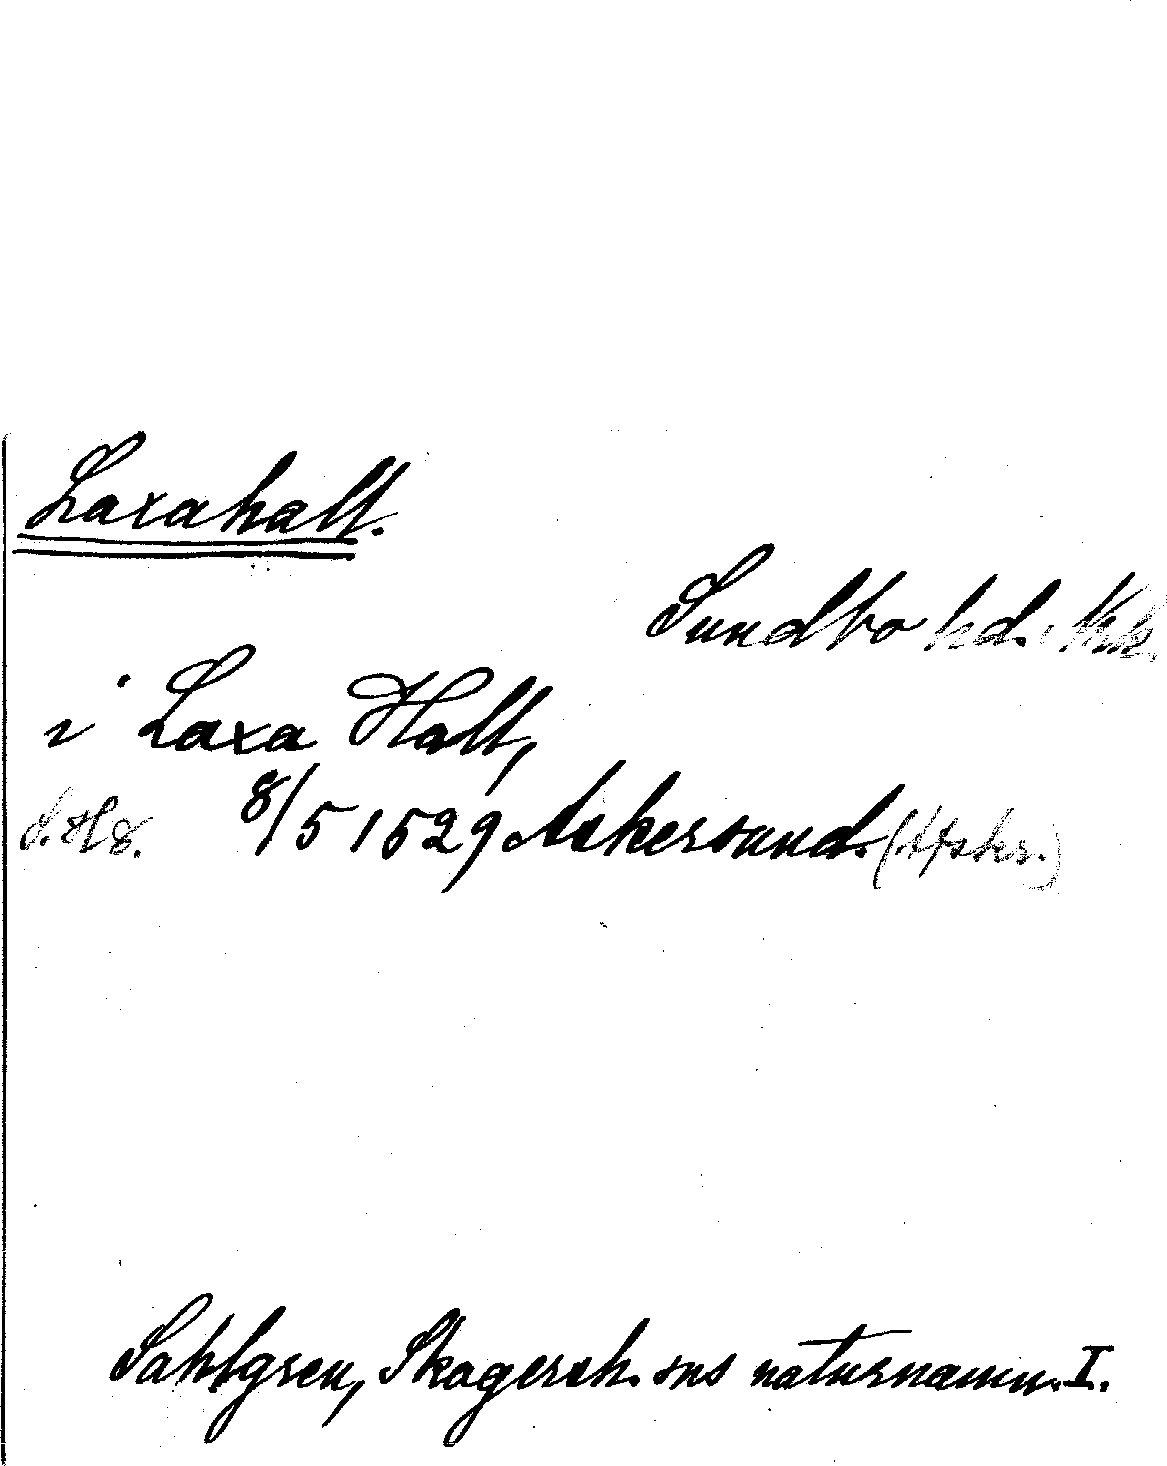 Laxahall.
Sundbo hd.
i Laxa Hall,
8/5 1529 Askersund. (Afskr.)
Sahlgren, Skagersh. sns naturnamn. I.